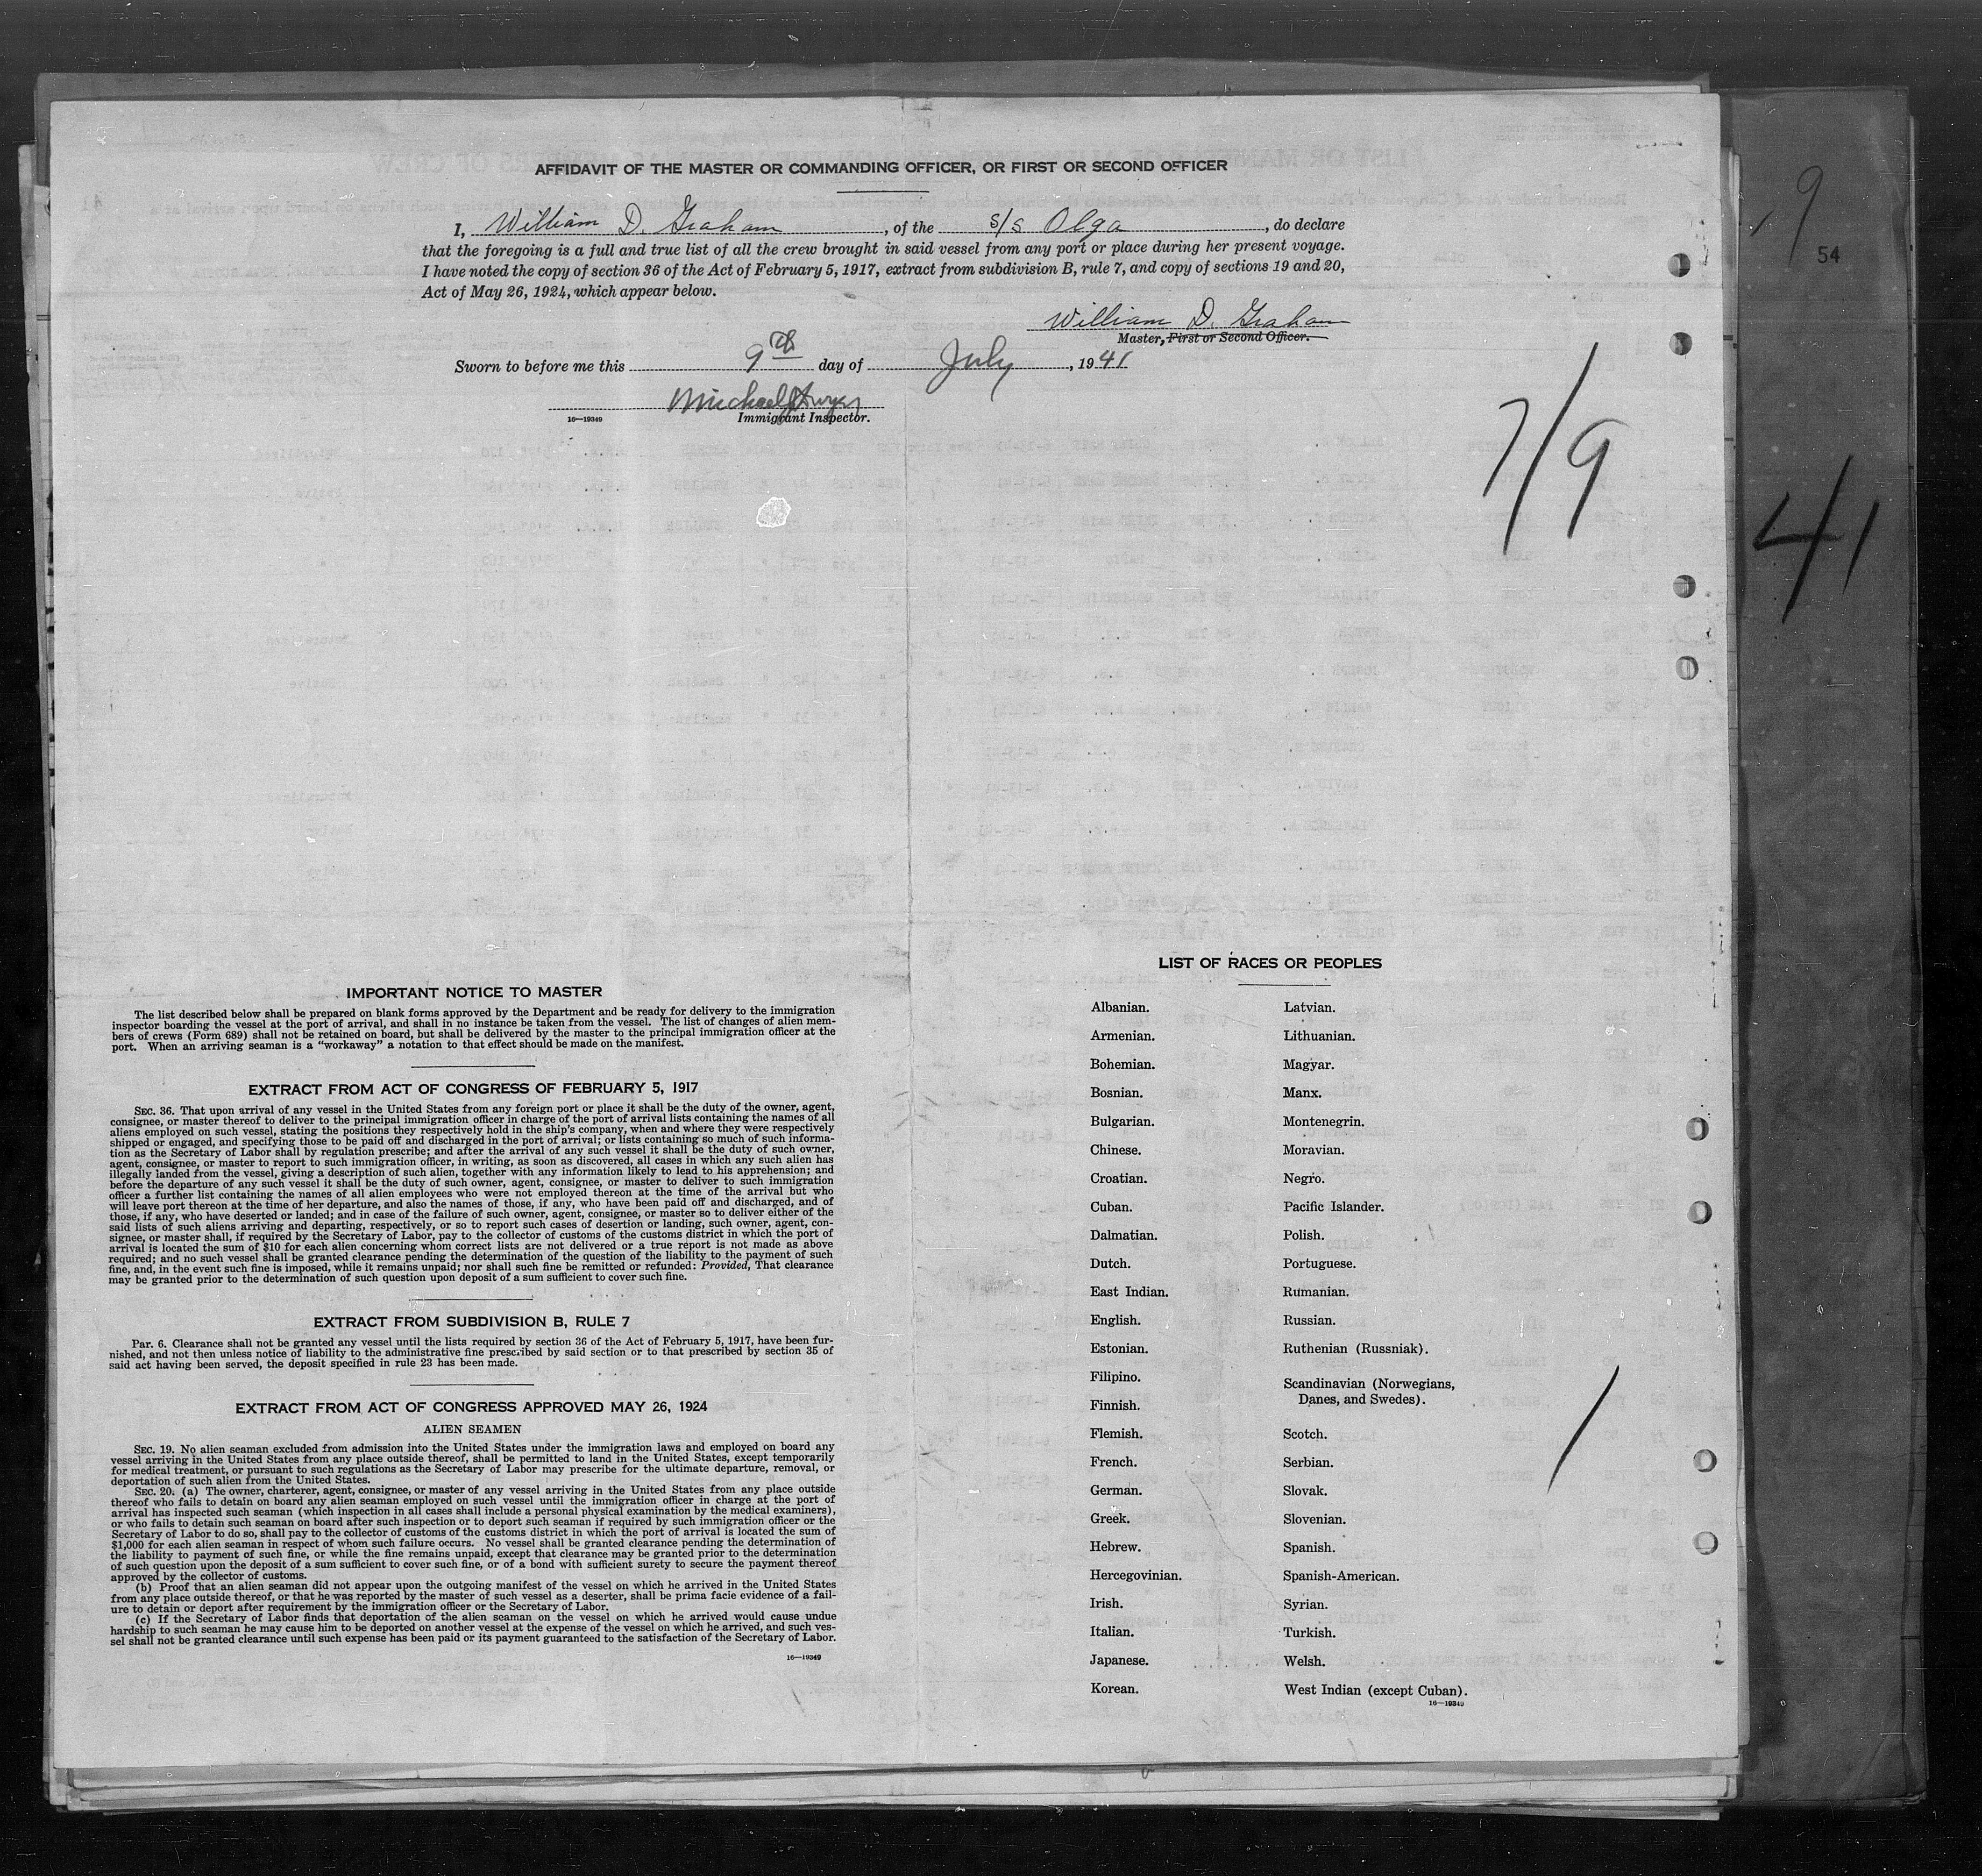 AFFIDAVIT OF THE MASTER OR COMMANDING OFFICER, OR FIRST OR SECOND OFFICER
I, William D. Graham, of the s/s Olga, do declare
that the foregoing is a full and true list of all the crew brought in said vessel from any port or place during her present voyage.
I have noted the copy of section 36 of the Act of February 5, 1917, extract from subdivision B, rule 7, and copy of sections 19 and 20,
Act of May 26, 1924, which appear below.
William D. Graham
Master, First or Second Officer.
Sworn to before me this 9th day of July, 1941
Michael
16—19349 Immigrant Inspector.
9
54
7/9
41
IMPORTANT NOTICE TO MASTER
The list described below shall be prepared on blank forms approved by the Department and be ready for delivery to the immigration
inspector boarding the vessel at the port of arrival, and shall in no instance be taken from the vessel. The list of changes of alien mem-
bers of crews (Form 689) shall not be retained on board, but shall be delivered by the master to the principal immigration officer at the
port. When an arriving seaman is a "workaway" a notation to that effect should be made on the manifest.
EXTRACT FROM ACT OF CONGRESS OF FEBRUARY 5, 1917
SEC. 36. That upon arrival of any vessel in the United States from any foreign port or place it shall be the duty of the owner, agent,
consignee, or master thereof to deliver to the principal immigration officer in charge of the port of arrival lists containing the names of all
aliens employed on such vessel, stating the positions they respectively hold in the ship's company, when and where they were respectively
shipped or engaged, and specifying those to be paid off and discharged in the port of arrival; or lists containing so much of such informa-
tion as the Secretary of Labor shall by regulation prescribe; and after the arrival of any such vessel it shall be the duty of such owner,
agent, consignee, or master to report to such immigration officer, in writing, as soon as discovered, all cases in which any such alien has
illegally landed from the vessel, giving a description of such alien, together with any information likely to lead to his apprehension; and
before the departure of any such vessel it shall be the duty of such owner, agent, consignee, or master to deliver to such immigration
officer a further list containing the names of all alien employees who were not employed thereon at the time of the arrival but who
will leave port thereon at the time of her departure, and also the names of those, if any, who have been paid off and discharged, and of
those, if any, who have deserted or landed; and in case of the failure of such owner, agent, consignee, or master so to deliver either of the
said lists of such aliens arriving and departing, respectively, or so to report such cases of desertion or landing, such owner, agent, con-
signee, or master shall, if required by the Secretary of Labor, pay to the collector of customs of the customs district in which the port of
arrival is located the sum of $10 for each alien concerning whom correct lists are not delivered or a true report is not made as above
required; and no such vessel shall be granted clearance pending the determination of the question of the liability to the payment of such
fine, and, in the event such fine is imposed, while it remains unpaid; nor shall such fine be remitted or refunded: Provided, That clearance
may be granted prior to the determination of such question upon deposit of a sum sufficient to cover such fine.
EXTRACT FROM SUBDIVISION B, RULE 7
Par. 6. Clearance shall not be granted any vessel until the lists required by section 36 of the Act of February 5, 1917, have been fur-
nished, and not then unless notice of liability to the administrative fine prescribed by said section or to that prescribed by section 35 of
said act having been served, the deposit specified in rule 23 has been made.
EXTRACT FROM ACT OF CONGRESS APPROVED MAY 26, 1924
ALIEN SEAMEN
SEC. 19. No alien seaman excluded from admission into the United States under the immigration laws and employed on board any
vessel arriving in the United States from any place outside thereof, shall be permitted to land in the United States, except temporarily
for medical treatment, or pursuant to such regulations as the Secretary of Labor may prescribe for the ultimate departure, removal, or
deportation of such alien from the United States.
SEC. 20. (a) The owner, charterer, agent, consignee, or master of any vessel arriving in the United States from any place outside
thereof who fails to detain on board any alien seaman employed on such vessel until the immigration officer in charge at the port of
arrival has inspected such seaman (which inspection in all cases shall include a personal physical examination by the medical examiners),
or who fails to detain such seaman on board after such inspection or to deport such seaman if required by such immigration officer or the
Secretary of Labor to do so, shall pay to the collector of customs of the customs district in which the port of arrival is located the sum of
$1,000 for each alien seaman in respect of whom such failure occurs. No vessel shall be granted clearance pending the determination of
the liability to payment of such fine, or while the fine remains unpaid, except that clearance may be granted prior to the determination
of such question upon the deposit of a sum sufficient to cover such fine, or of a bond with sufficient surety to secure the payment thereof
approved by the collector of customs.
(b) Proof that an alien seaman did not appear upon the outgoing manifest of the vessel on which he arrived in the United States
from any place outside thereof, or that he was reported by the master of such vessel as a deserter, shall be prima facie evidence of a fail-
ure to detain or deport after requirement by the immigration officer or the Secretary of Labor.
(c) If the Secretary of Labor finds that deportation of the alien seaman on the vessel on which he arrived would cause undue
hardship to such seaman he may cause him to be deported on another vessel at the expense of the vessel on which he arrived, and such ves-
sel shall not be granted clearance until such expense has been paid or its payment guaranteed to the satisfaction of the Secretary of Labor.
16—19349
LIST OF RACES OR PEOPLES
Albanian.
Armenian.
Bohemian.
Bosnian.
Bulgarian.
Chinese.
Croatian.
Cuban.
Dalmatian.
Dutch.
East Indian.
English.
Estonian.
Filipino.
Finnish.
Flemish.
French.
German.
Greek.
Hebrew.
Hercegovinian.
Irish.
Italian.
Japanese.
Korean.
Latvian.
Lithuanian.
Magyar.
Manx.
Montenegrin.
Moravian.
Negro.
Pacific Islander.
Polish.
Portuguese.
Rumanian.
Russian.
Ruthenian (Russniak).
Scandinavian (Norwegians,
Danes, and Swedes).
Scotch.
Serbian.
Slovak.
Slovenian.
Spanish.
Spanish-American.
Syrian.
Turkish.
Welsh.
West Indian (except Cuban).
16—19349